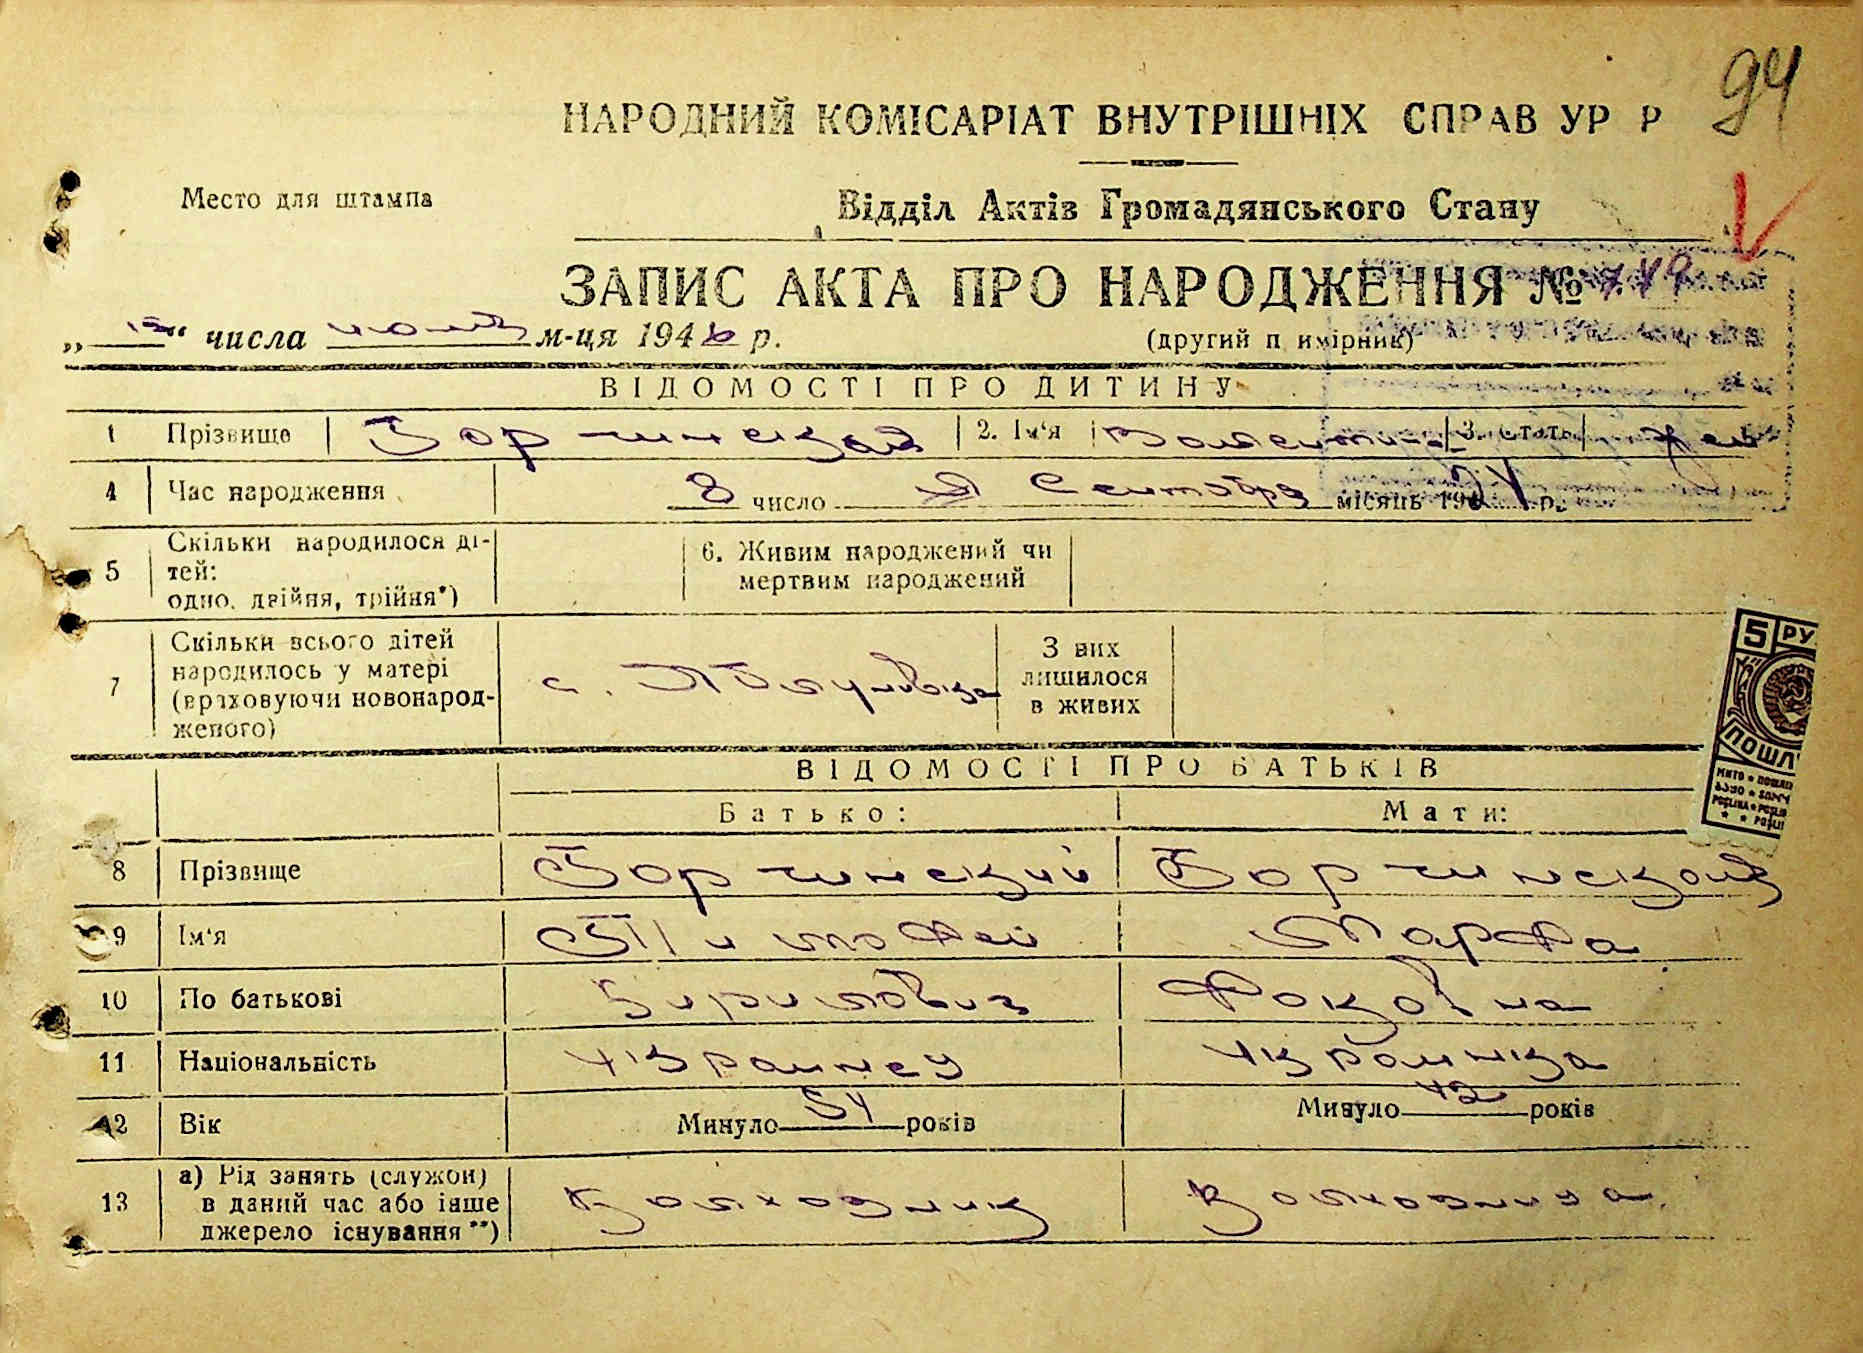 94
НАРОДНИЙ КОМІСАРІАТ ВНУТРІШНІХ СПРАВ УР Р
Место для штампа
Відділ Актів Громадянського Стану
ЗАПИС АКТА ПРО НАРОДЖЕННЯ №
„ “ числа июля м-ця 1946 р.
(другий п имірник)
ВІДОМОСТІ ПРО ДИТИНУ
1 Прізвище Борчинская 2. Ім'я Валентина 3. стать жен
4 Час народження 8 число Сентября місяць 1924 р.
5 Скільки народилося ді-
тей:
одно, двійня, трійня*)
6. Живим народжений чи
мертвим народжений
7 Скільки всього дітей
народилось у матері
(враховуючи новонарод-
женого)
с.
З них
лишилося
в живих
5 РУ
ПОШЛ
ВІДОМОСТІ ПРО БАТЬКІВ
Батько: Мати:
8 Прізвище Борчинский Борчинская
9 Ім'я Тимофей Марфа
10 По батькові Кирилович Фоковна
11 Національність украинец украинка
12 Вік Минуло 54 років Минуло 42 років
13 а) Рід занять (служби)
в даний час або інше
джерело існування **)
колхозник колхозница